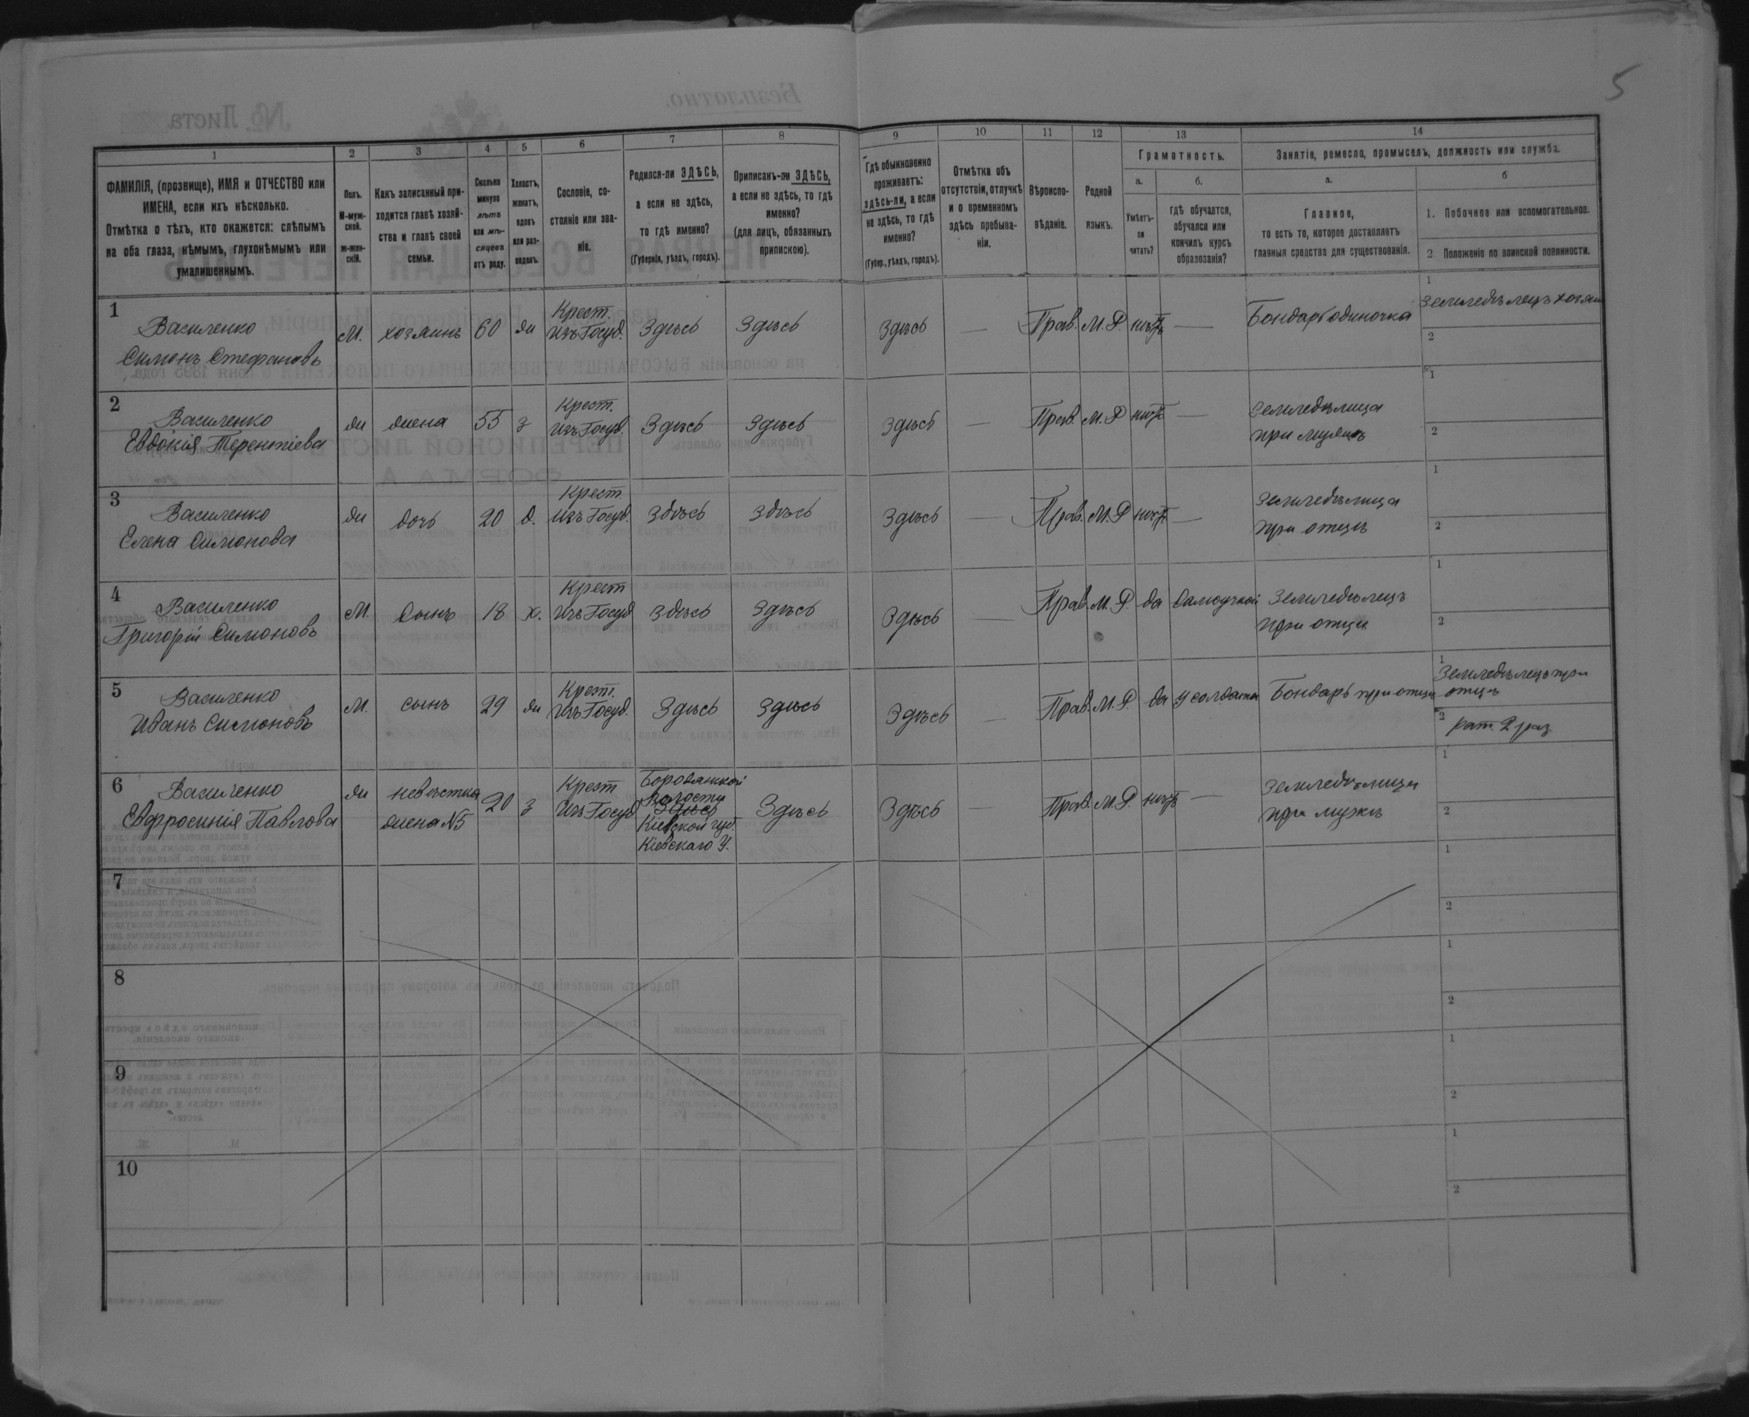 5
1 2 3 4 5 6 7 8 9 10 11 12 13 14
ФАМИЛІЯ, (прозвище), ИМЯ и ОТЧЕСТВО или
ИМЕНА, если ихъ нѣсколько.
Отмѣтка о тѣхъ, кто окажется: слѣпымъ
на оба глаза, нѣмымъ, глухонѣмымъ или
умалишеннымъ.
Полъ.
М-муж-
ской.
Ж-жен-
скій.
Какъ записанный при-
ходится главѣ хозяй-
ства и главѣ своей
семьи.
Сколько
минуло
лѣтъ
или мѣ-
сяцевъ
отъ роду.
Холостъ,
женатъ,
вдовъ
или раз-
веденъ.
Сословіе, со-
стояніе или зва-
ніе.
Родился-ли ЗДѢСЬ,
а если не здѣсь,
то гдѣ именно?
(Губернія, уѣздъ, городъ).
Приписанъ-ли ЗДѢСЬ,
а если не здѣсь, то гдѣ
именно?
(для лицъ, обязанныхъ
припискою).
Гдѣ обыкновенно
проживаетъ:
здѣсь-ли, а если
не здѣсь, то гдѣ
именно?
(Губер., уѣздъ, городъ).
Отмѣтка объ
отсутствіи, отлучкѣ
и о временномъ
здѣсь пребыва-
ніи.
Вѣроиспо-
вѣданіе.
Родной
языкъ.
Грамотность.
а.
Умѣетъ-
ли
читать?
б.
гдѣ обучается,
обучался или
кончилъ курсъ
образованія?
Занятіе, ремесло, промыселъ, должность или служба.
а.
Главное,
то есть то, которое доставляетъ
главныя средства для существованія.
б
1. Побочное или вспомогательное.
2. Положеніе по воинской повинности.
1
Василенко
Симонъ Стефановъ
М. хозяинъ 60 жи
Крест.
изъ Госуд.
Здѣсь Здѣсь Здѣсь — Прав. М.Р. нѣтъ — Бондарь одиночка
1
Земледѣлецъ хозяи
2
2
Василенко
Евдокія Терентіева
жи жена 55 з
Крест.
изъ Госуд.
Здѣсь Здѣсь Здѣсь — Прав. М.Р нѣтъ —
Земледѣлица
при мужѣ
1
2
3
Василенко
Елена Симонова
жи дочь 20 д.
Крест
изъ Госуд.
Здѣсь Здѣсь Здѣсь — Прав. М.Р нѣтъ —
Земледѣлица
при отцѣ
1
2
4
Василенко
Григорій Симоновъ
М. сынъ 18 х.
Крест
изъ Госуд
Здѣсь Здѣсь Здѣсь — Прав. М.Р. да самоучкой
Земледѣлецъ
при отцѣ
1
2
5
Василенко
Иванъ Симоновъ
М. сынъ 29 жи
Крест.
изъ Госуд.
Здѣсь Здѣсь Здѣсь — Прав. М.Р. да у солдата Бондарь при отцѣ
1
Земледѣлецъ при
отцѣ
2
рат. 2 раз
6
Василенко
Евфросинія Павлова
жи
невѣстка
жена №5
20 з
Крест
изъ Госуд
Бородянской
Волости
Здѣсь
Кіевской губ.
Кіевскаго У.
Здѣсь Здѣсь — Прав. М.Р. нѣтъ —
Земледѣлица
при мужѣ
1
2
7
1
2
8
1
2
9
1
2
10
1
2